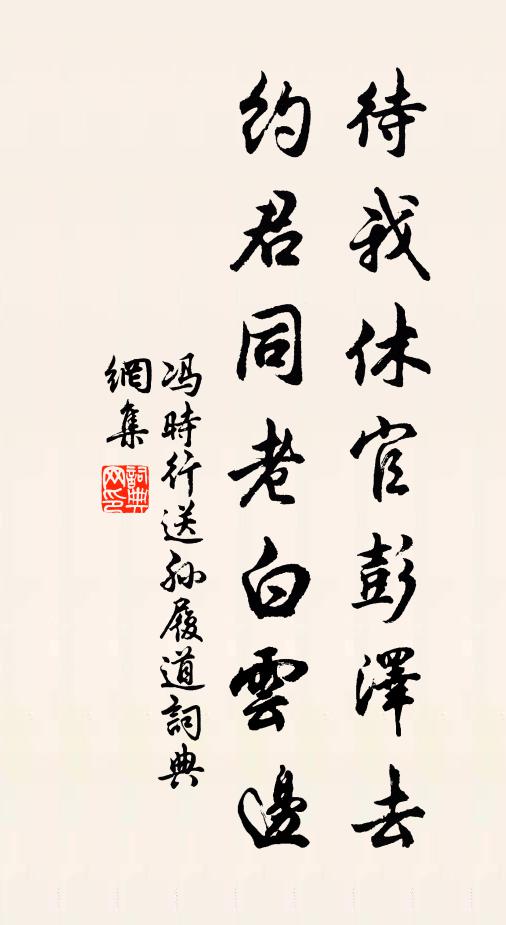 待我休官彭澤去
約君同老白雲邊
冯時行送孙履道詞典
網集
詞典網印